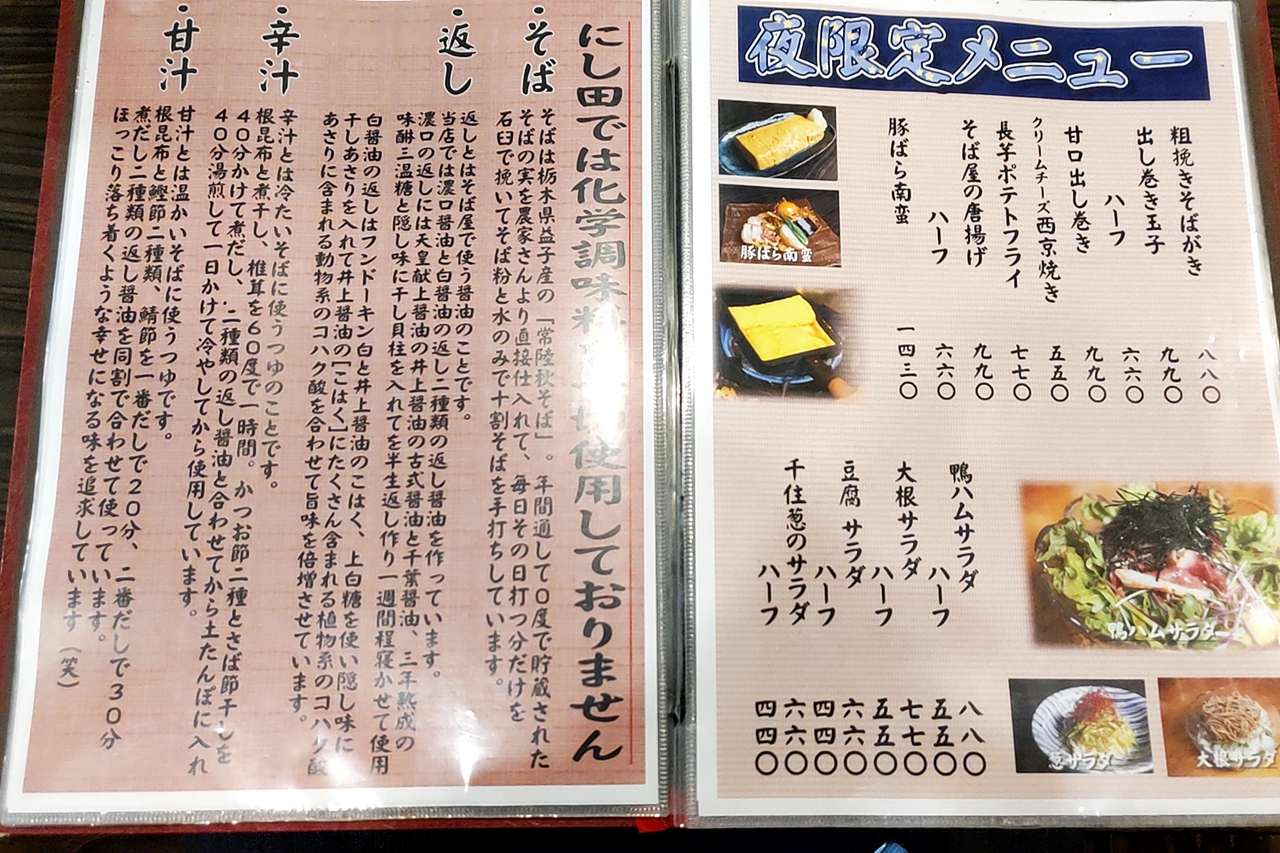 にし田では化学調味料を一切使用しておりません
・そば
そばは栃木県益子産の「常陸秋そば」。年間通して0度で貯蔵された
そばの実を農家さんより直接仕入れて、毎日その日打つ分だけを
石臼で挽いてそば粉と水のみで十割そばを手打ちしています。
・返し
返しとはそば屋で使う醤油のことです。
当店では濃口醤油と白醤油の返し二種類の返し醤油を作っています。
濃口の返しには天皇献上醤油の井上醤油の古式醤油と千葉醤油、三年熟成の
味醂三温糖と隠し味に干し貝柱を入れてを半生返し作り一週間程寝かせて使用
白醤油の返しはフンドーキン白と井上醤油のこはく、上白糖を使い隠し味に
干しあさりを入れて井上醤油の「こはく」にたくさん含まれる植物系のコハク酸
あさりに含まれる動物系のコハク酸を合わせて旨味を倍増させています。
・辛汁
辛汁とは冷たいそばに使うつゆのことです。
根昆布と煮干し、椎茸を60度で一時間。かつお節二種とさば節干しを
40分かけて煮だし、二種類の返し醤油と合わせてから土たんぽに入れ
40分湯煎して一日かけて冷やしてから使用しています。
・甘汁
甘汁とは温かいそばに使うつゆです。
根昆布と鰹節二種類、鯖節を一番だしで20分、二番だしで30分
煮だし二種類の返し醤油を同割で合わせて使っています。
ほっこり落ち着くような幸せになる味を追求しています(笑)
夜限定メニュー
粗挽きそばがき 八八〇
出し巻き玉子 九九〇
ハーフ 六六〇
甘口出し巻き 九九〇
クリームチーズ西京焼き 五五〇
長芋ポテトフライ 七七〇
そば屋の唐揚げ 九九〇
ハーフ 六六〇
豚ばら南蛮 一四三〇
豚ばら南蛮
鴨ハムサラダ 八八〇
ハーフ 五五〇
大根サラダ 七七〇
ハーフ 五五〇
豆腐サラダ 六六〇
ハーフ 四四〇
千住葱のサラダ 六六〇
ハーフ 四四〇
鴨ハムサラダ
葱サラダ
大根サラダ